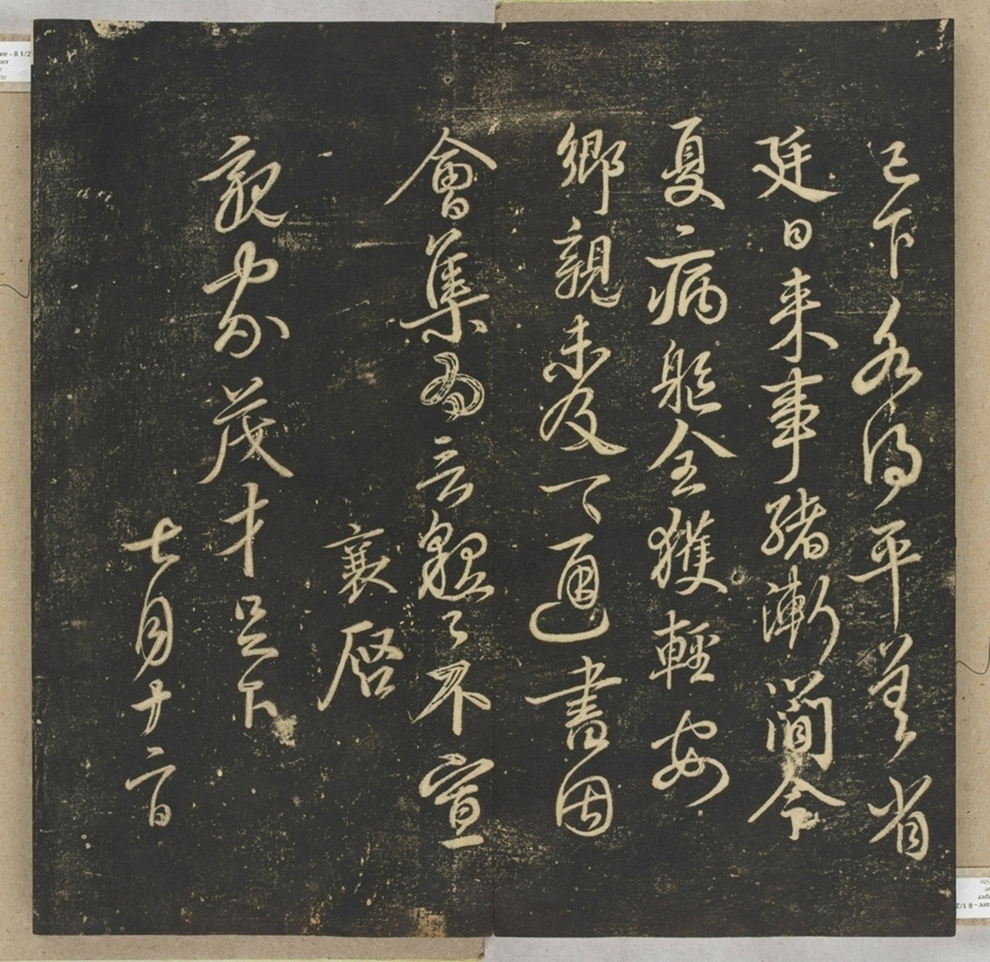 已下各得平善省
廷日来事緒漸簡今
夏病軀全獲輕安
鄉親未及一一通書因
會集為言懇々不宣
襄啓
親家茂才足下
七月十二日